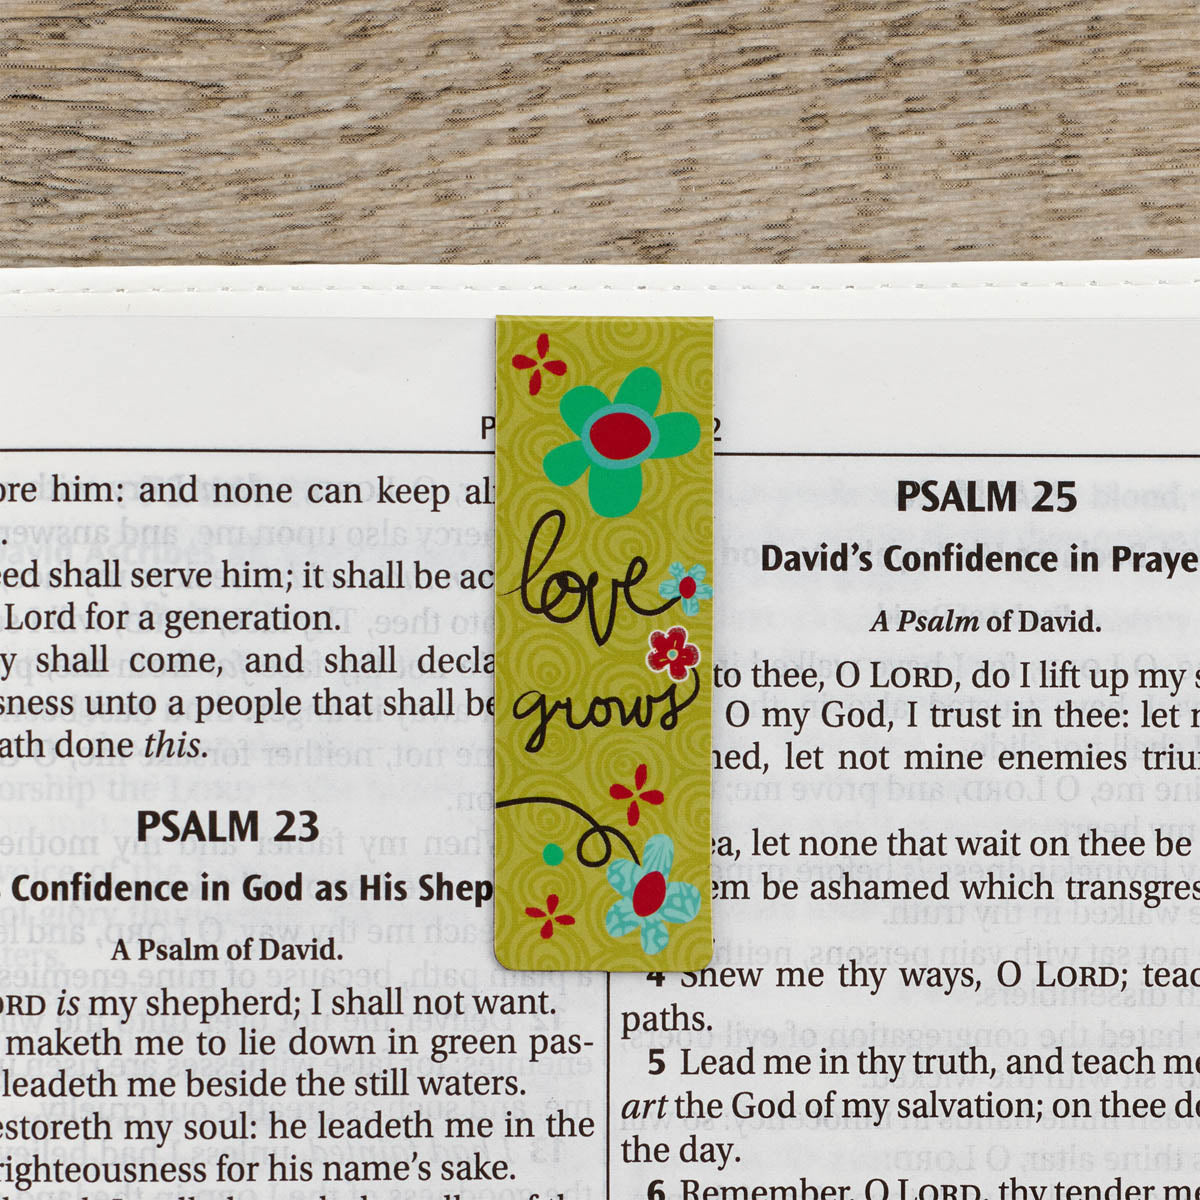 love
grows
ore him: and none can keep al
eed shall serve him; it shall be ac
Lord for a generation.
y shall come, and shall decla
sness unto a people that shall be
ath done this.
PSALM 23
Confidence in God as His Shep
A Psalm of David.
ORD is my shepherd; I shall not want.
maketh me to lie down in green pas-
leadeth me beside the still waters.
estoreth my soul: he leadeth me in the
righteousness for his name's sake.
PSALM 25
David's Confidence in Praye
A Psalm of David.
to thee, O LORD, do I lift up my s
O my God, I trust in thee: let
ned, let not mine enemies triu
ea, let none that wait on thee be
em be ashamed which transgres
4 Shew me thy ways, O LORD; teac
paths.
5 Lead me in thy truth, and teach me
art the God of my salvation; on thee do
the day.
6 Remember, O LORD, thy tender me